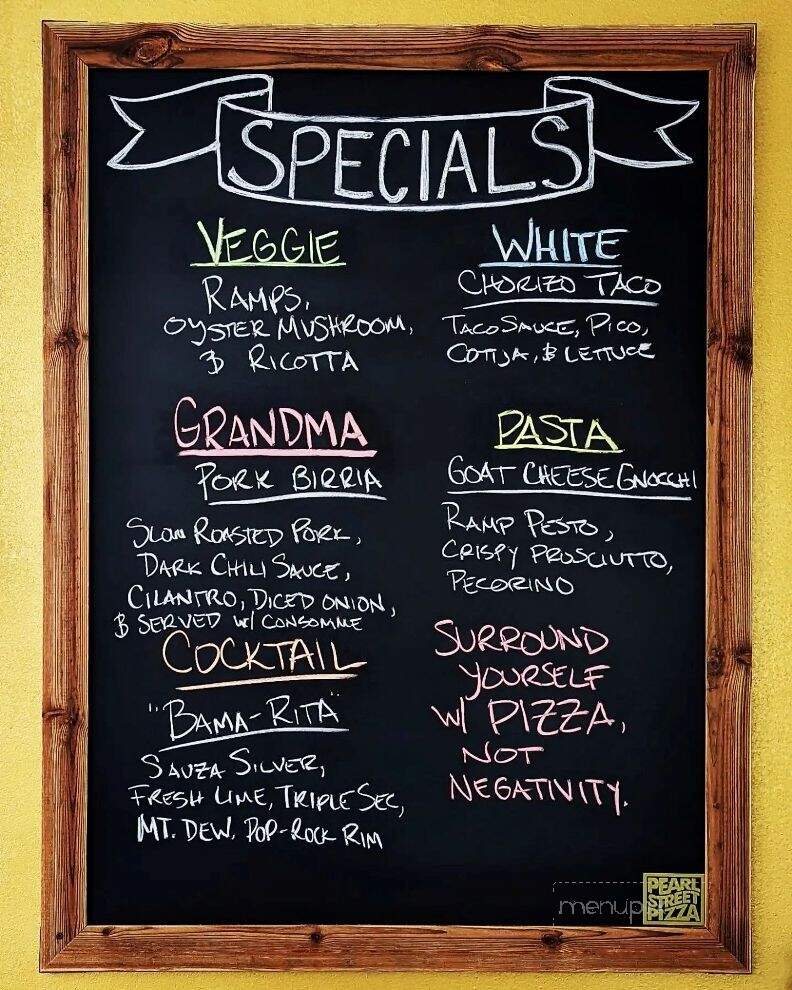 SPECIALS
VEGGIE
RAMPS,
OYSTER MUSHROOM,
& RICOTTA
WHITE
CHORIZO TACO
TACO SAUCE, PICO,
COTIJA, & LETTUCE
GRANDMA
PORK BIRRIA
SLOW ROASTED PORK,
DARK CHILI SAUCE,
CILANTRO, DICED ONION,
& SERVED W/ CONSOMME
PASTA
GOAT CHEESE GNOCCHI
RAMP PESTO,
CRISPY PROSCIUTTO,
PECORINO
COCKTAIL
"BAMA-RITA"
SAUZA SILVER,
FRESH LIME, TRIPLE SEC,
MT. DEW, POP-ROCK RIM
SURROUND
YOURSELF
W/ PIZZA,
NOT
NEGATIVITY.
menup
PEARL
STREET
PIZZA